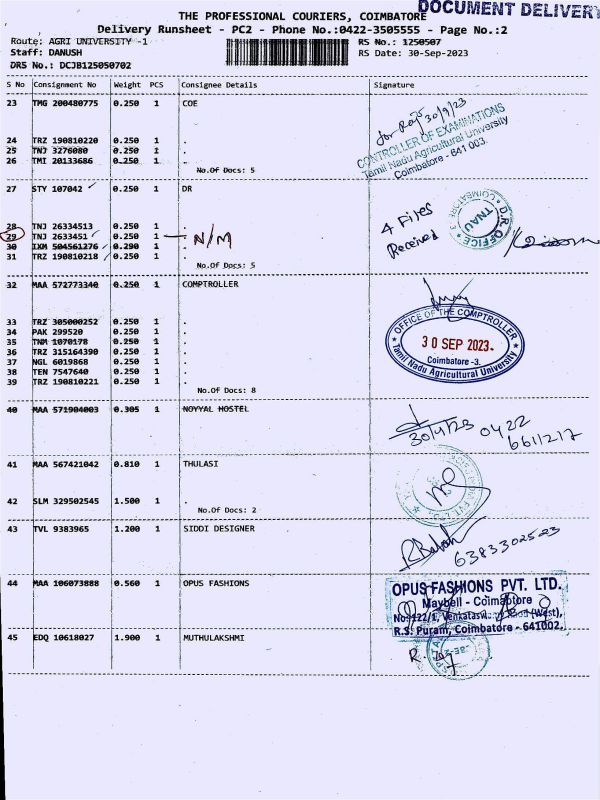 THE PROFESSIONAL COURIERS, COIMBATORE
DOCUMENT DELIVERY
Delivery Runsheet - PC2 - Phone No.:0422-3505555 - Page No.:2
Route: AGRI UNIVERSITY -1 RS No.: 1250507
Staff: DANUSH RS Date: 30-Sep-2023
DRS No.: DCJB125050702
S No Consignment No Weight PCS Consignee Details Signature
23 TMG 200480775 0.250 1 COE
30/9/23
CONTROLLER OF EXAMINATIONS
Tamil Nadu Agricultural University
Coimbatore - 641 003.
24 TRZ 190810220 0.250 1 .
25 TNJ 3276080 0.250 1 .
26 TMI 20133686 0.250 1 .
No.Of Docs: 5
27 STY 107042 0.250 1 DR
4 Files
Received
D.R. OFFICE
TNAU
COIMBATORE - 3
28 TNJ 26334513 0.250 1 .
29 TNJ 2633451 0.250 1 . N/M
30 IXM 504561276 0.290 1 .
31 TRZ 190810218 0.250 1 .
No.Of Docs: 5
32 MAA 572773340 0.250 1 COMPTROLLER
OFFICE OF THE COMPTROLLER
30 SEP 2023.
Coimbatore -3.
Tamil Nadu Agricultural University
33 TRZ 305000252 0.250 1 .
34 PAK 299520 0.250 1 .
35 TNM 1070178 0.250 1 .
36 TRZ 315164390 0.250 1 .
37 NGL 6019868 0.250 1 .
38 TEN 7547640 0.250 1 .
39 TRZ 190810221 0.250 1 .
No.Of Docs: 8
40 MAA 571904003 0.305 1 NOYYAL HOSTEL
30/9/23 0422
6611217
41 MAA 567421042 0.810 1 THULASI
42 SLM 329502545 1.500 1 .
No.Of Docs: 2
43 TVL 9383965 1.200 1 SIDDI DESIGNER
6383302523
44 MAA 106073888 0.560 1 OPUS FASHIONS
OPUS FASHIONS PVT. LTD.
Maybell - Coimbatore
No: 122/1, Road (West),
R.S. Puram, Coimbatore - 641002.
45 EDQ 10618027 1.900 1 MUTHULAKSHMI